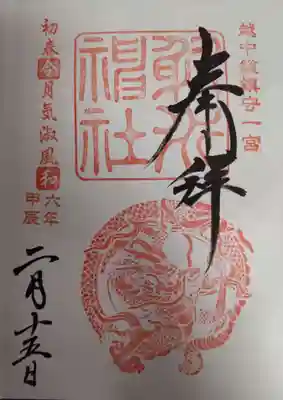 越中總鎮守一宮
奉拝
射水神社
初春令月気淑風和
六年
甲辰
二月十五日